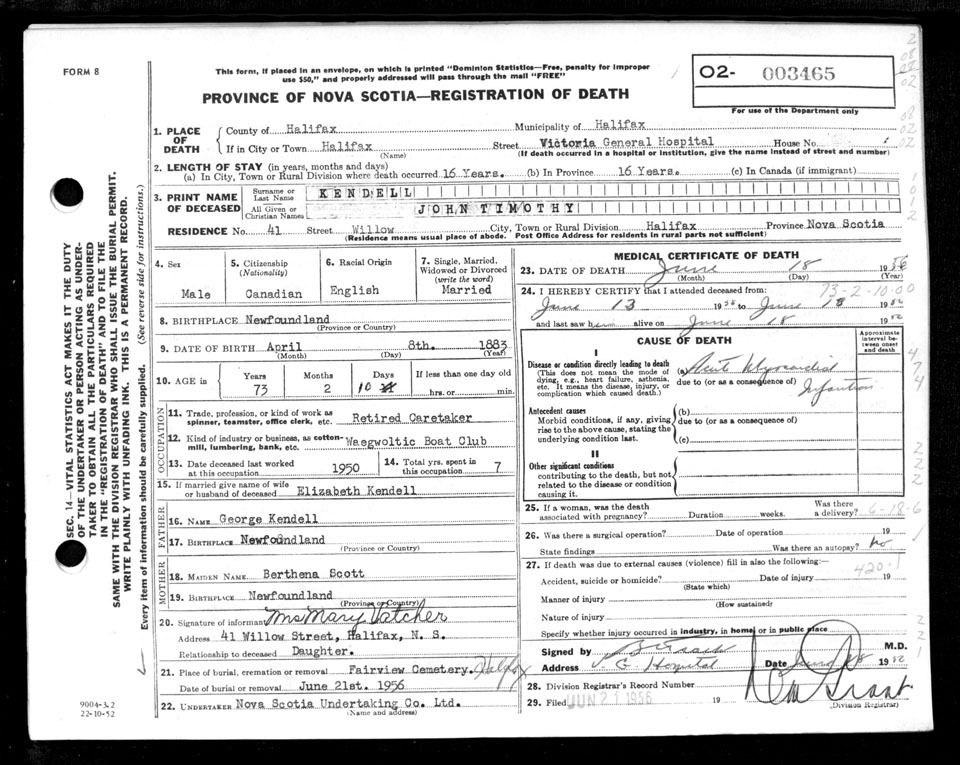 FORM 8
This form, if placed in an envelope, on which is printed "Dominion Statistics—Free, penalty for improper
use $50," and properly addressed will pass through the mail "FREE"
PROVINCE OF NOVA SCOTIA—REGISTRATION OF DEATH
O2- 003465
For use of the Department only
SEC. 14—VITAL STATISTICS ACT MAKES IT THE DUTY
OF THE UNDERTAKER OR PERSON ACTING AS UNDER-
TAKER TO OBTAIN ALL THE PARTICULARS REQUIRED
IN THE "REGISTRATION OF DEATH" AND TO FILE THE
SAME WITH THE DIVISION REGISTRAR WHO SHALL ISSUE THE BURIAL PERMIT.
WRITE PLAINLY WITH UNFADING INK. THIS IS A PERMANENT RECORD.
Every item of information should be carefully supplied. (See reverse side for instructions.)
1. PLACE OF DEATH
County of Halifax Municipality of Halifax
If in City or Town Halifax Street Victoria General Hospital House No.
(Name) (If death occurred in a hospital or institution, give the name instead of street and number)
2. LENGTH OF STAY (in years, months and days)
(a) In City, Town or Rural Division where death occurred 16 Years. (b) In Province 16 Years. (c) In Canada (if immigrant)
3. PRINT NAME OF DECEASED
Surname or Last Name KENDELL
All Given or Christian Names JOHN TIMOTHY
RESIDENCE No. 41 Street Willow City, Town or Rural Division Halifax Province Nova Scotia
(Residence means usual place of abode. Post Office Address for residents in rural parts not sufficient)
4. Sex Male
5. Citizenship (Nationality) Canadian
6. Racial Origin English
7. Single, Married, Widowed or Divorced (write the word) Married
8. BIRTHPLACE Newfoundland
(Province or Country)
9. DATE OF BIRTH April 8th. 1883
(Month) (Day) (Year)
10. AGE IN Years Months Days If less than one day old
73 2 10 hrs. or min.
OCCUPATION
11. Trade, profession, or kind of work as
spinner, teamster, office clerk, etc. Retired Caretaker
12. Kind of industry or business, as cotton-
mill, lumbering, bank, etc. Waegwoltic Boat Club
13. Date deceased last worked
at this occupation 1950
14. Total yrs. spent in
this occupation 7
15. If married give name of wife
or husband of deceased Elizabeth Kendell
FATHER
16. NAME George Kendell
17. BIRTHPLACE Newfoundland
(Province or Country)
MOTHER
18. MAIDEN NAME Berthena Scott
19. BIRTHPLACE Newfoundland
(Province or Country)
20. Signature of informant Mrs Mary Vatcher
Address 41 Willow Street, Halifax, N. S.
Relationship to deceased Daughter.
21. Place of burial, cremation or removal Fairview Cemetery. Halifax
Date of burial or removal June 21st. 1956
22. UNDERTAKER Nova Scotia Undertaking Co. Ltd.
(Name and address)
9004-3.2
22-10-52
MEDICAL CERTIFICATE OF DEATH
23. DATE OF DEATH June 18 1956
(Month) (Day) (Year)
24. I HEREBY CERTIFY that I attended deceased from:
73-2-10-00
June 13 1956 to June 18 1956
and last saw him alive on June 18 1956
CAUSE OF DEATH
Approximate interval between onset and death
I
Disease or condition directly leading to death
(This does not mean the mode of
dying, e.g., heart failure, asthenia,
etc. It means the disease, injury, or
complication which caused death.)
(a) Acute Myocardial
due to (or as a consequence of) Infarction
Antecedent causes
Morbid conditions, if any, giving
rise to the above cause, stating the
underlying condition last.
(b)
due to (or as a consequence of)
(c)
II
Other significant conditions
contributing to the death, but not
related to the disease or condition
causing it.
25. If a woman, was the death
associated with pregnancy? Duration weeks. Was there a delivery?
6-18-6
26. Was there a surgical operation? Date of operation 19
State findings Was there an autopsy? no
27. If death was due to external causes (violence) fill in also the following:—
420.1
Accident, suicide or homicide? Date of injury 19
(State which)
Manner of injury
(How sustained)
Nature of injury
Specify whether injury occurred in industry, in home, or in public place
Signed by M.D.
Address V. G. Hospital Date June 18 1956
28. Division Registrar's Record Number
29. Filed JUN 21 1956 19
(Division Registrar)